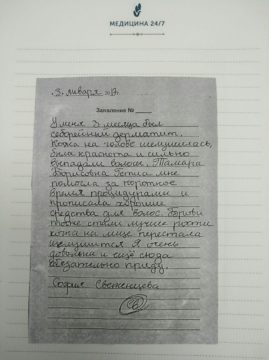 МЕДИЦИНА 24/7
3. января
Заявление №
У меня 3 месяца был
себорейный дерматит.
Кожа на голове шелушилась,
была краснота и сильно
выпадали волосы. Тамара
Борисовна мне
помогла за короткое
время процедурами и
прописала хорошие
средства для волос. Брови
тоже стали лучше расти
кожа на лице перестала
шелушится. Я очень
довольна и ещё сюда
обязательно приду.
София